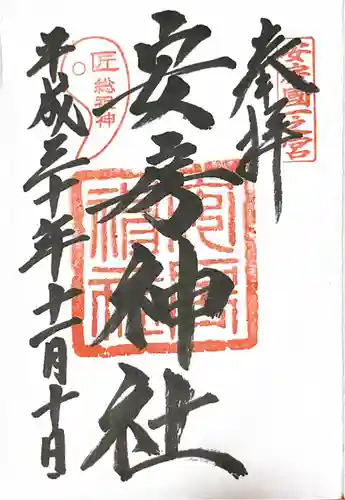 奉拝
安房國一之宮
安房神社
安房神社
匠総祖神
平成三十年十一月十日